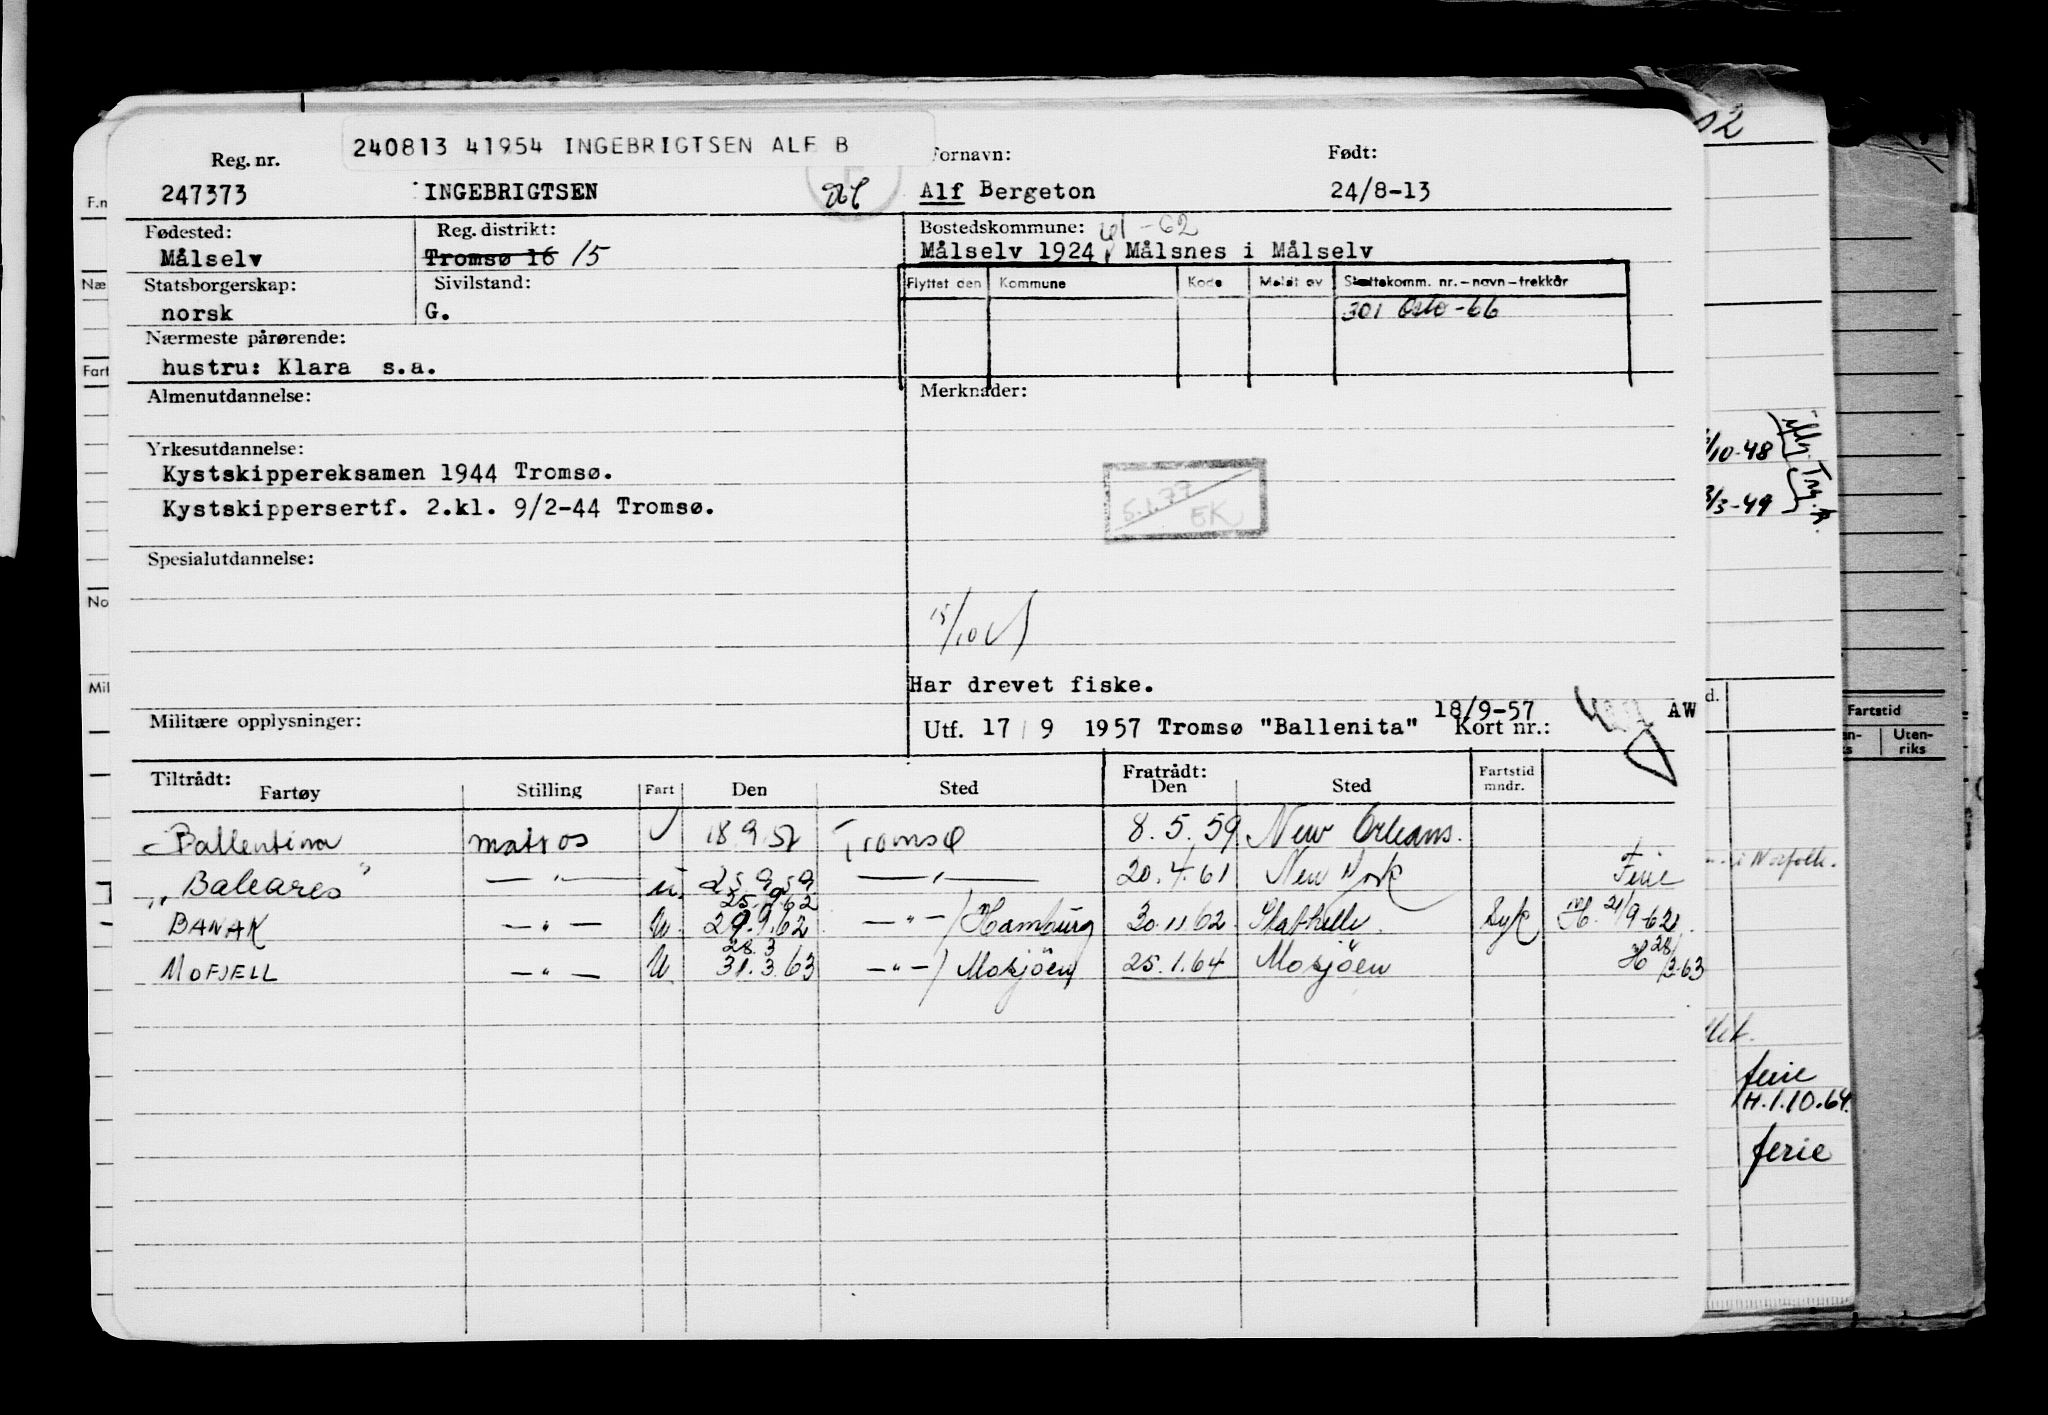 240813 41954 INGEBRIGTSEN ALF B
Reg. nr. Fornavn: Født:
247373 INGEBRIGTSEN Alf Bergeton 24/8-13
Fødested: Reg. distrikt: Bostedskommune: 61-62
Målselv Tromsø 16 15 Målselv 1924, Målsnes i Målselv
Statsborgerskap: Sivilstand: Flyttet den Kommune Kode Meldt av Skattekomm. nr.-navn-trekkår
norsk G. 301 Oslo-66
Nærmeste pårørende:
hustru: Klara s.a.
Almenutdannelse: Merknader:
Yrkesutdannelse:
Kystskippereksamen 1944 Tromsø.
5.1.77
Kystskippersertf. 2.kl. 9/2-44 Tromsø.
EK
Spesialutdannelse:
15/10
Har drevet fiske.
Militære opplysninger:
18/9-57 AW
Utf. 17/9 1957 Tromsø "Ballenita" Kort nr.:
Tiltrådt: Fratrådt: Fartstid
Fartøy Stilling Fart Den Sted Den Sted mndr.
Ballentina matros 18.9.57 Tromsø 8.5.59 New Orleans.
"Baleares" —"— u. 25.9.59 —"— 20.4.61 New York Ferie
25.9.62
BANAK —"— U 29.9.62 —"—/Hamburg 30.11.62 Stathelle. Syk H. 21/9-62
28.3
MOFJELL —"— U 31.3.63 —"—/Mosjöen 25.1.64 Mosjöen H 28/3-63
F.n
Næ
Fart
No
Mil
/10-48
/3-49
d.
Fartstid
Uten-
riks
i Norfolk.
ferie
H.1.10.64.
ferie